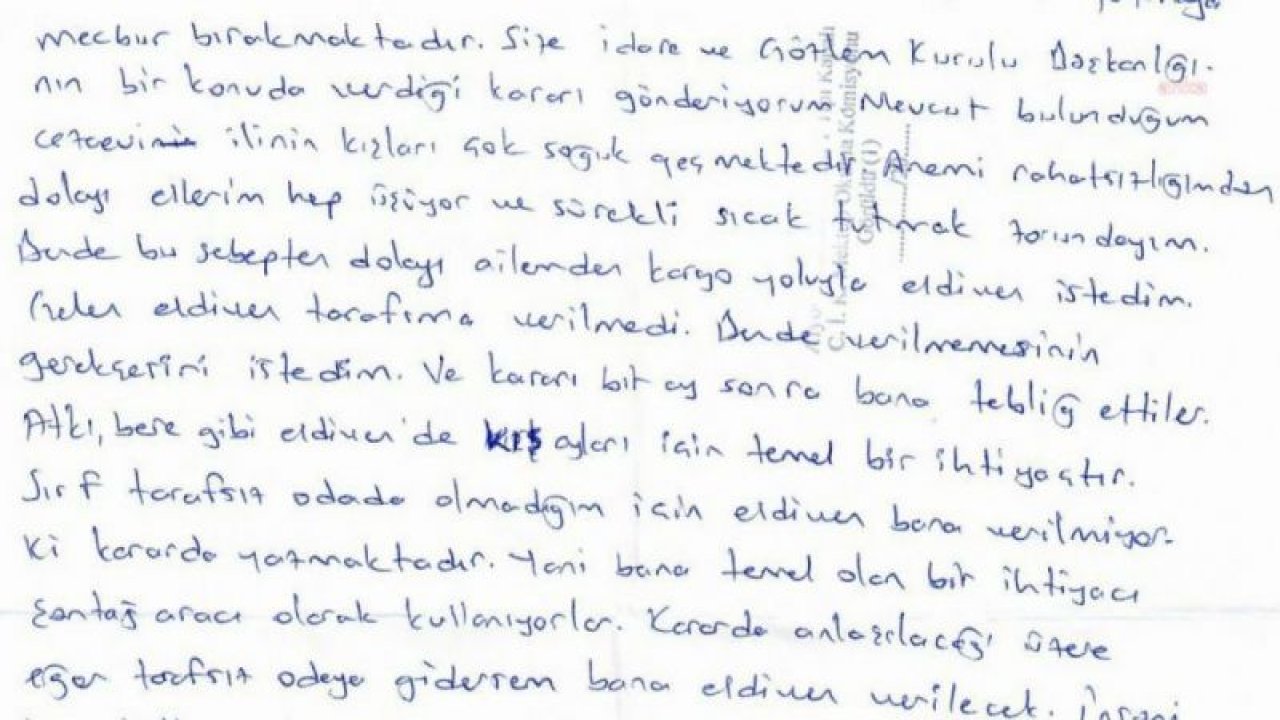 mecbur bırakmaktadır. Size idare ve Gözlem Kurulu Başkanlığı-
nın bir konuda verdiği kararı gönderiyorum Mevcut bulunduğum
cezaevinin ilinin kışları çok soğuk geçmektedir Anemi rahatsızlığımdan
dolayı ellerim hep üşüyor ve sürekli sıcak tutmak zorundayım.
Bende bu sebepten dolayı ailemden kargo yoluyla eldiven istedim.
Gelen eldiven tarafıma verilmedi. Bende verilmemesinin
gerekçesini istedim. Ve kararı bir ay sonra bana tebliğ ettiler.
Atkı, bere gibi eldiven'de kış ayları için temel bir ihtiyaçtır.
Sırf tarafsız odada olmadığım için eldiven bana verilmiyor.
Ki kararda yazmaktadır. Yani bana temel olan bir ihtiyacı
şantaj aracı olarak kullanıyorlar. Kararda anlaşılacağı üzere
eğer tarafsız odaya gidersem bana eldiven verilecek. İnsani
Okuma Komisyonu
Görüldü (1)
anka